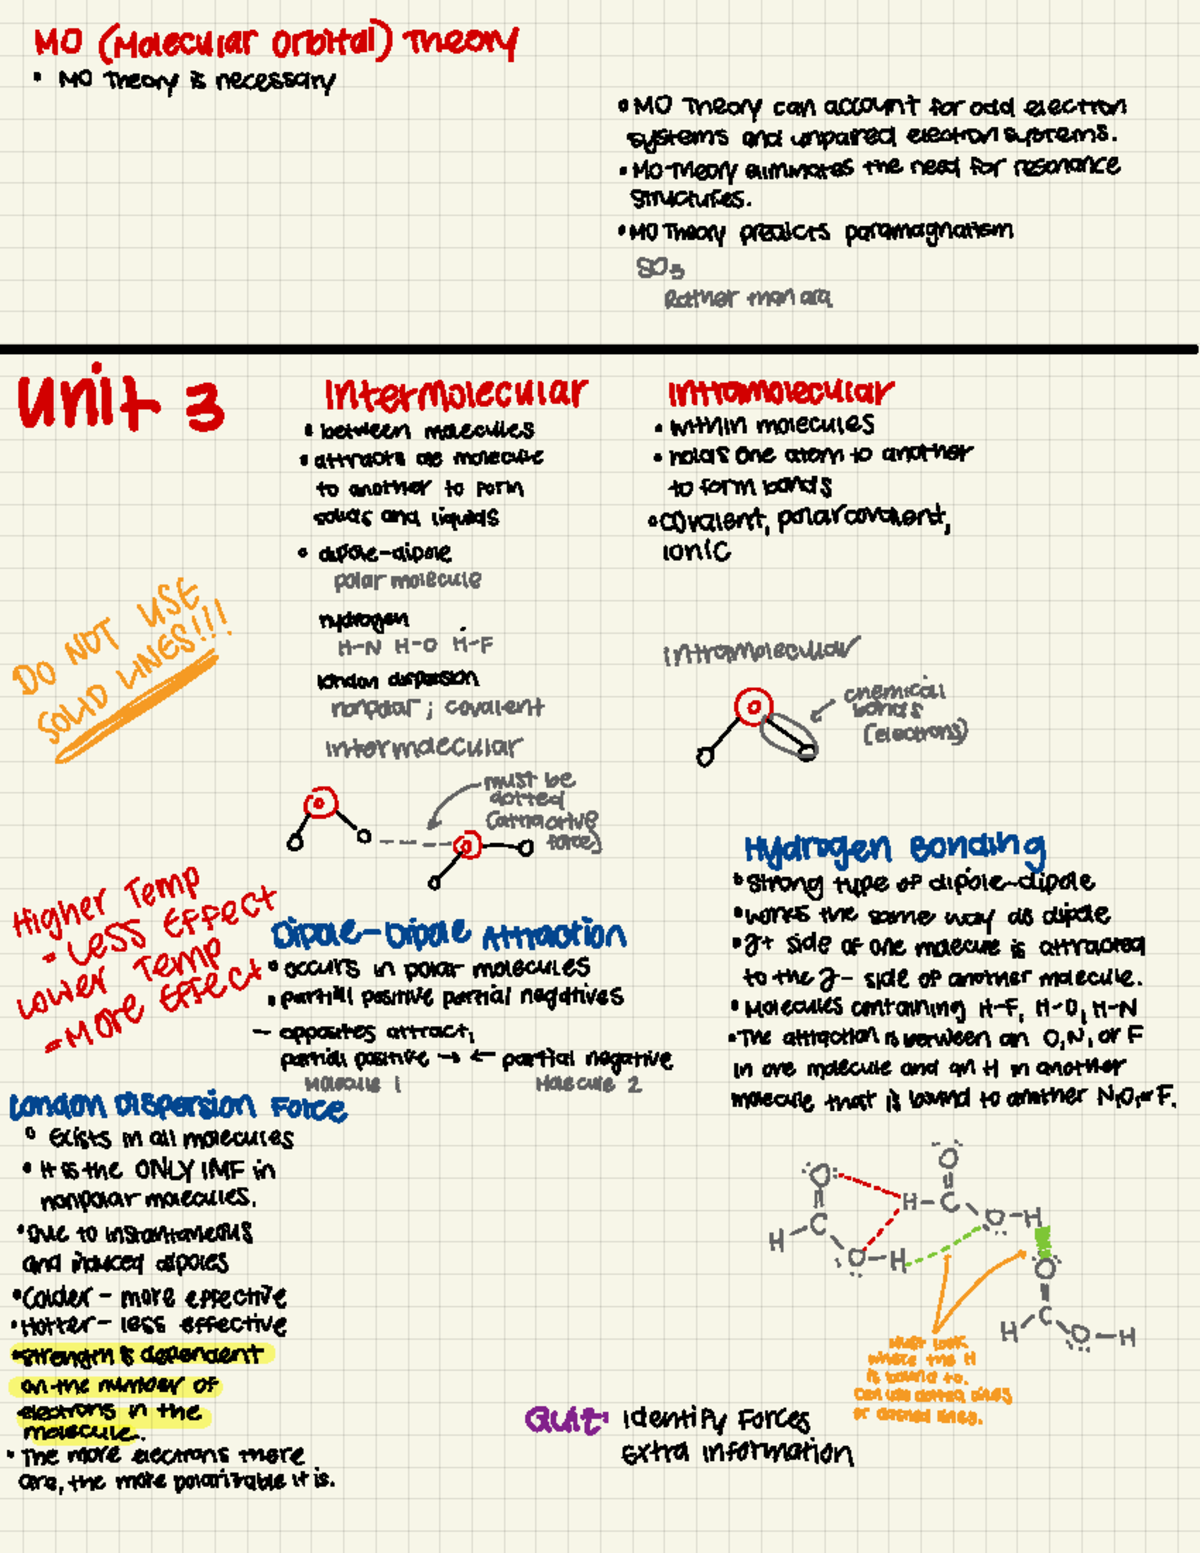 MO (Molecular Orbital) Theory
• MO Theory is necessary
• MO Theory can account for odd electron
systems and unpaired electron systems.
• MO Theory eliminates the need for resonance
structures.
• MO Theory predicts paramagnatism
SO3
Rather than are
Unit 3
Intermolecular
• between molecules
• attracts one molecule
to another to form
solids and liquids
• dipole-dipole
polar molecule
hydrogen
H-N H-O H-F
london dispersion
nonpolar ; covalent
intermolecular
must be
dotted
(attractive
force)
Intramolecular
• within molecules
• holds one atom to another
to form bonds
• covalent, polar covalent,
ionic
intramolecular
chemical
bonds
(electrons)
DO NOT USE
SOLID LINES!!!
Higher Temp
- Less Effect
Lower Temp
- More Effect
Dipole-Dipole Attraction
• occurs in polar molecules
• partial positive partial negatives
- opposites attract,
partial positive → ← partial negative
Molecule 1 Molecule 2
Hydrogen Bonding
• strong type of dipole-dipole
• works the same way as dipole
• δ+ side of one molecule is attracted
to the δ- side of another molecule.
• Molecules containing H-F, H-O, H-N
• The attraction is between an O, N, or F
in one molecule and an H in another
molecule that is bound to another N, O, or F.
London Dispersion Force
• Exists in all molecules
• It is the ONLY IMF in
nonpolar molecules.
• Due to instantaneous
and induced dipoles
• Colder - more effective
• Hotter - less effective
• strength is dependent
on the number of
electrons in the
molecule.
• The more electrons there
are, the more polarizable it is.
O
O
H-C
O-H
C
H
O-H
O
C
H
O-H
Must look
where the H
is bound to.
Can use dotted lines
or dashed lines.
Quiz: Identify Forces
Extra information